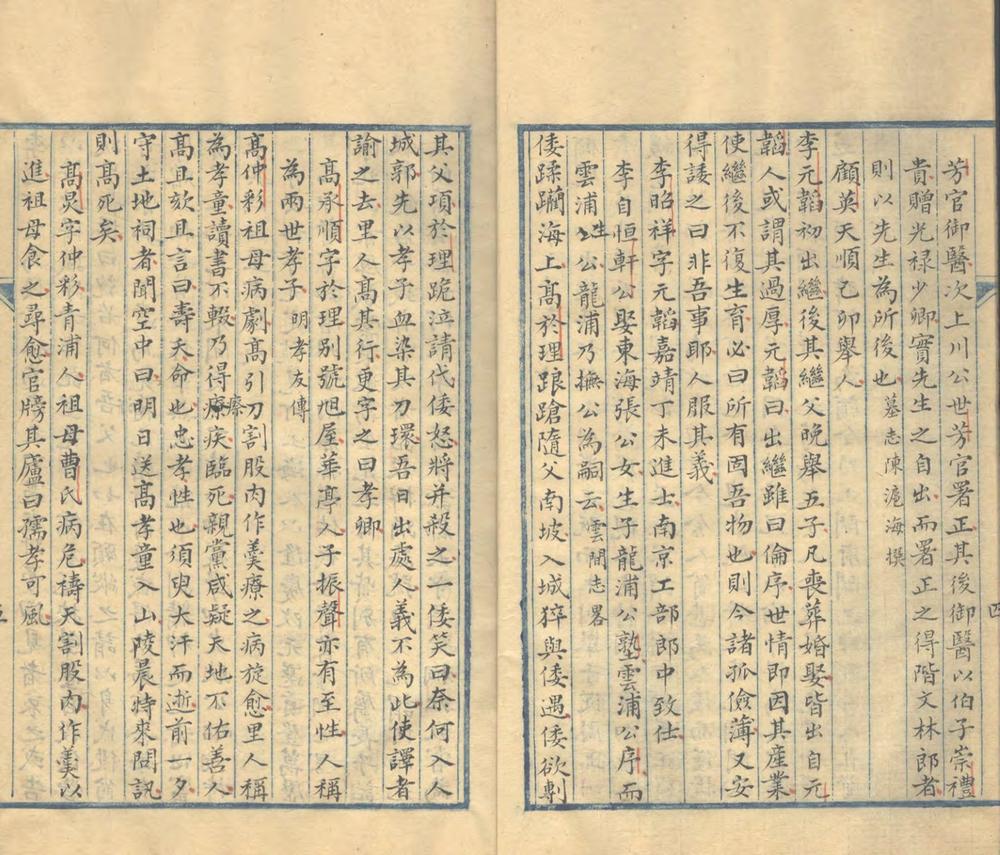 芳官御醫次上川公世芳官署正其後御醫以伯子崇禮
貴贈光禄少卿實先生之自出而署正之得階文林郎者
則以先生為所後也墓志陳滬海撰
顧英天順己卯舉人
李元韜初出繼後其繼父晚舉五子凡喪葬婚娶皆出自元
韜人或謂其過厚元韜曰出繼雖曰倫序世情即因其產業
使繼後不復生育必曰所有固吾物也則今諸孤儉薄又安
得諉之曰非吾事耶人服其義
李昭祥字元韜嘉靖丁未進士南京工部郎中致仕
李自恒軒公娶東海張公女生子龍浦公塾雲浦公序而
雲浦公生公龍浦乃撫公為嗣云雲間志畧
倭蹂躪海上高於理踉蹌隨父南坡入城猝與倭遇倭欲剸
其父項於理跪泣請代倭怒將并殺之一倭笑曰奈何入人
城郭先以孝子血染其刀環吾日出處人義不為此使譯者
諭之去里人高其行更字之曰孝卿
高承順字於理別號旭屋華亭人子振聲亦有至性人稱
為兩世孝子明孝友傳
高仲彩祖母病劇高引刀割股肉作羹療之病旋愈里人稱
為孝童讀書不輟乃得瘵疾臨死親黨咸疑天地不佑善人
高且欬且言曰壽夭命也忠孝性也須臾大汗而逝前一夕
守土地祠者聞空中曰明日送高孝童入山陵晨特來問訊
則高死矣
高炅字仲彩青浦人祖母曹氏病危禱天割股肉作羹以
進祖母食之尋愈官牓其廬曰孺孝可風